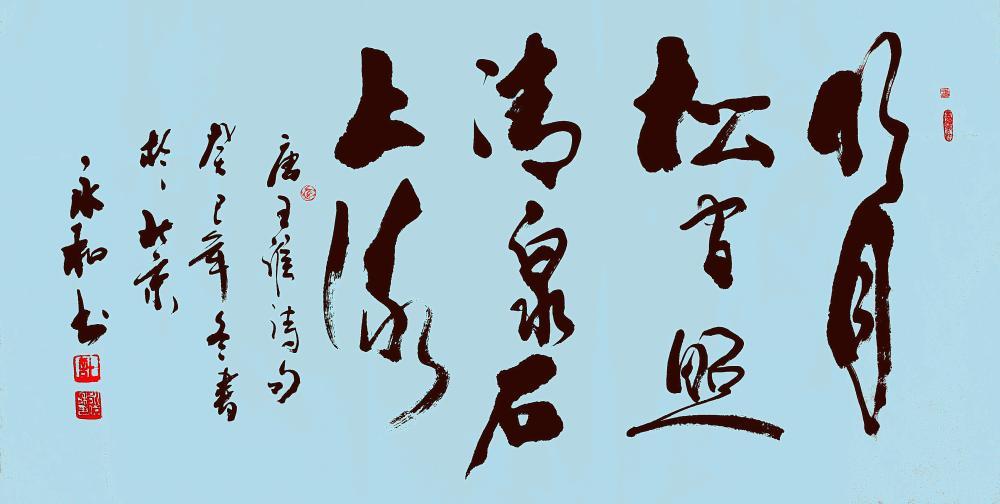 明月
松間照
清泉石
上流
唐王維詩句
癸巳年冬書
於北京
永和书